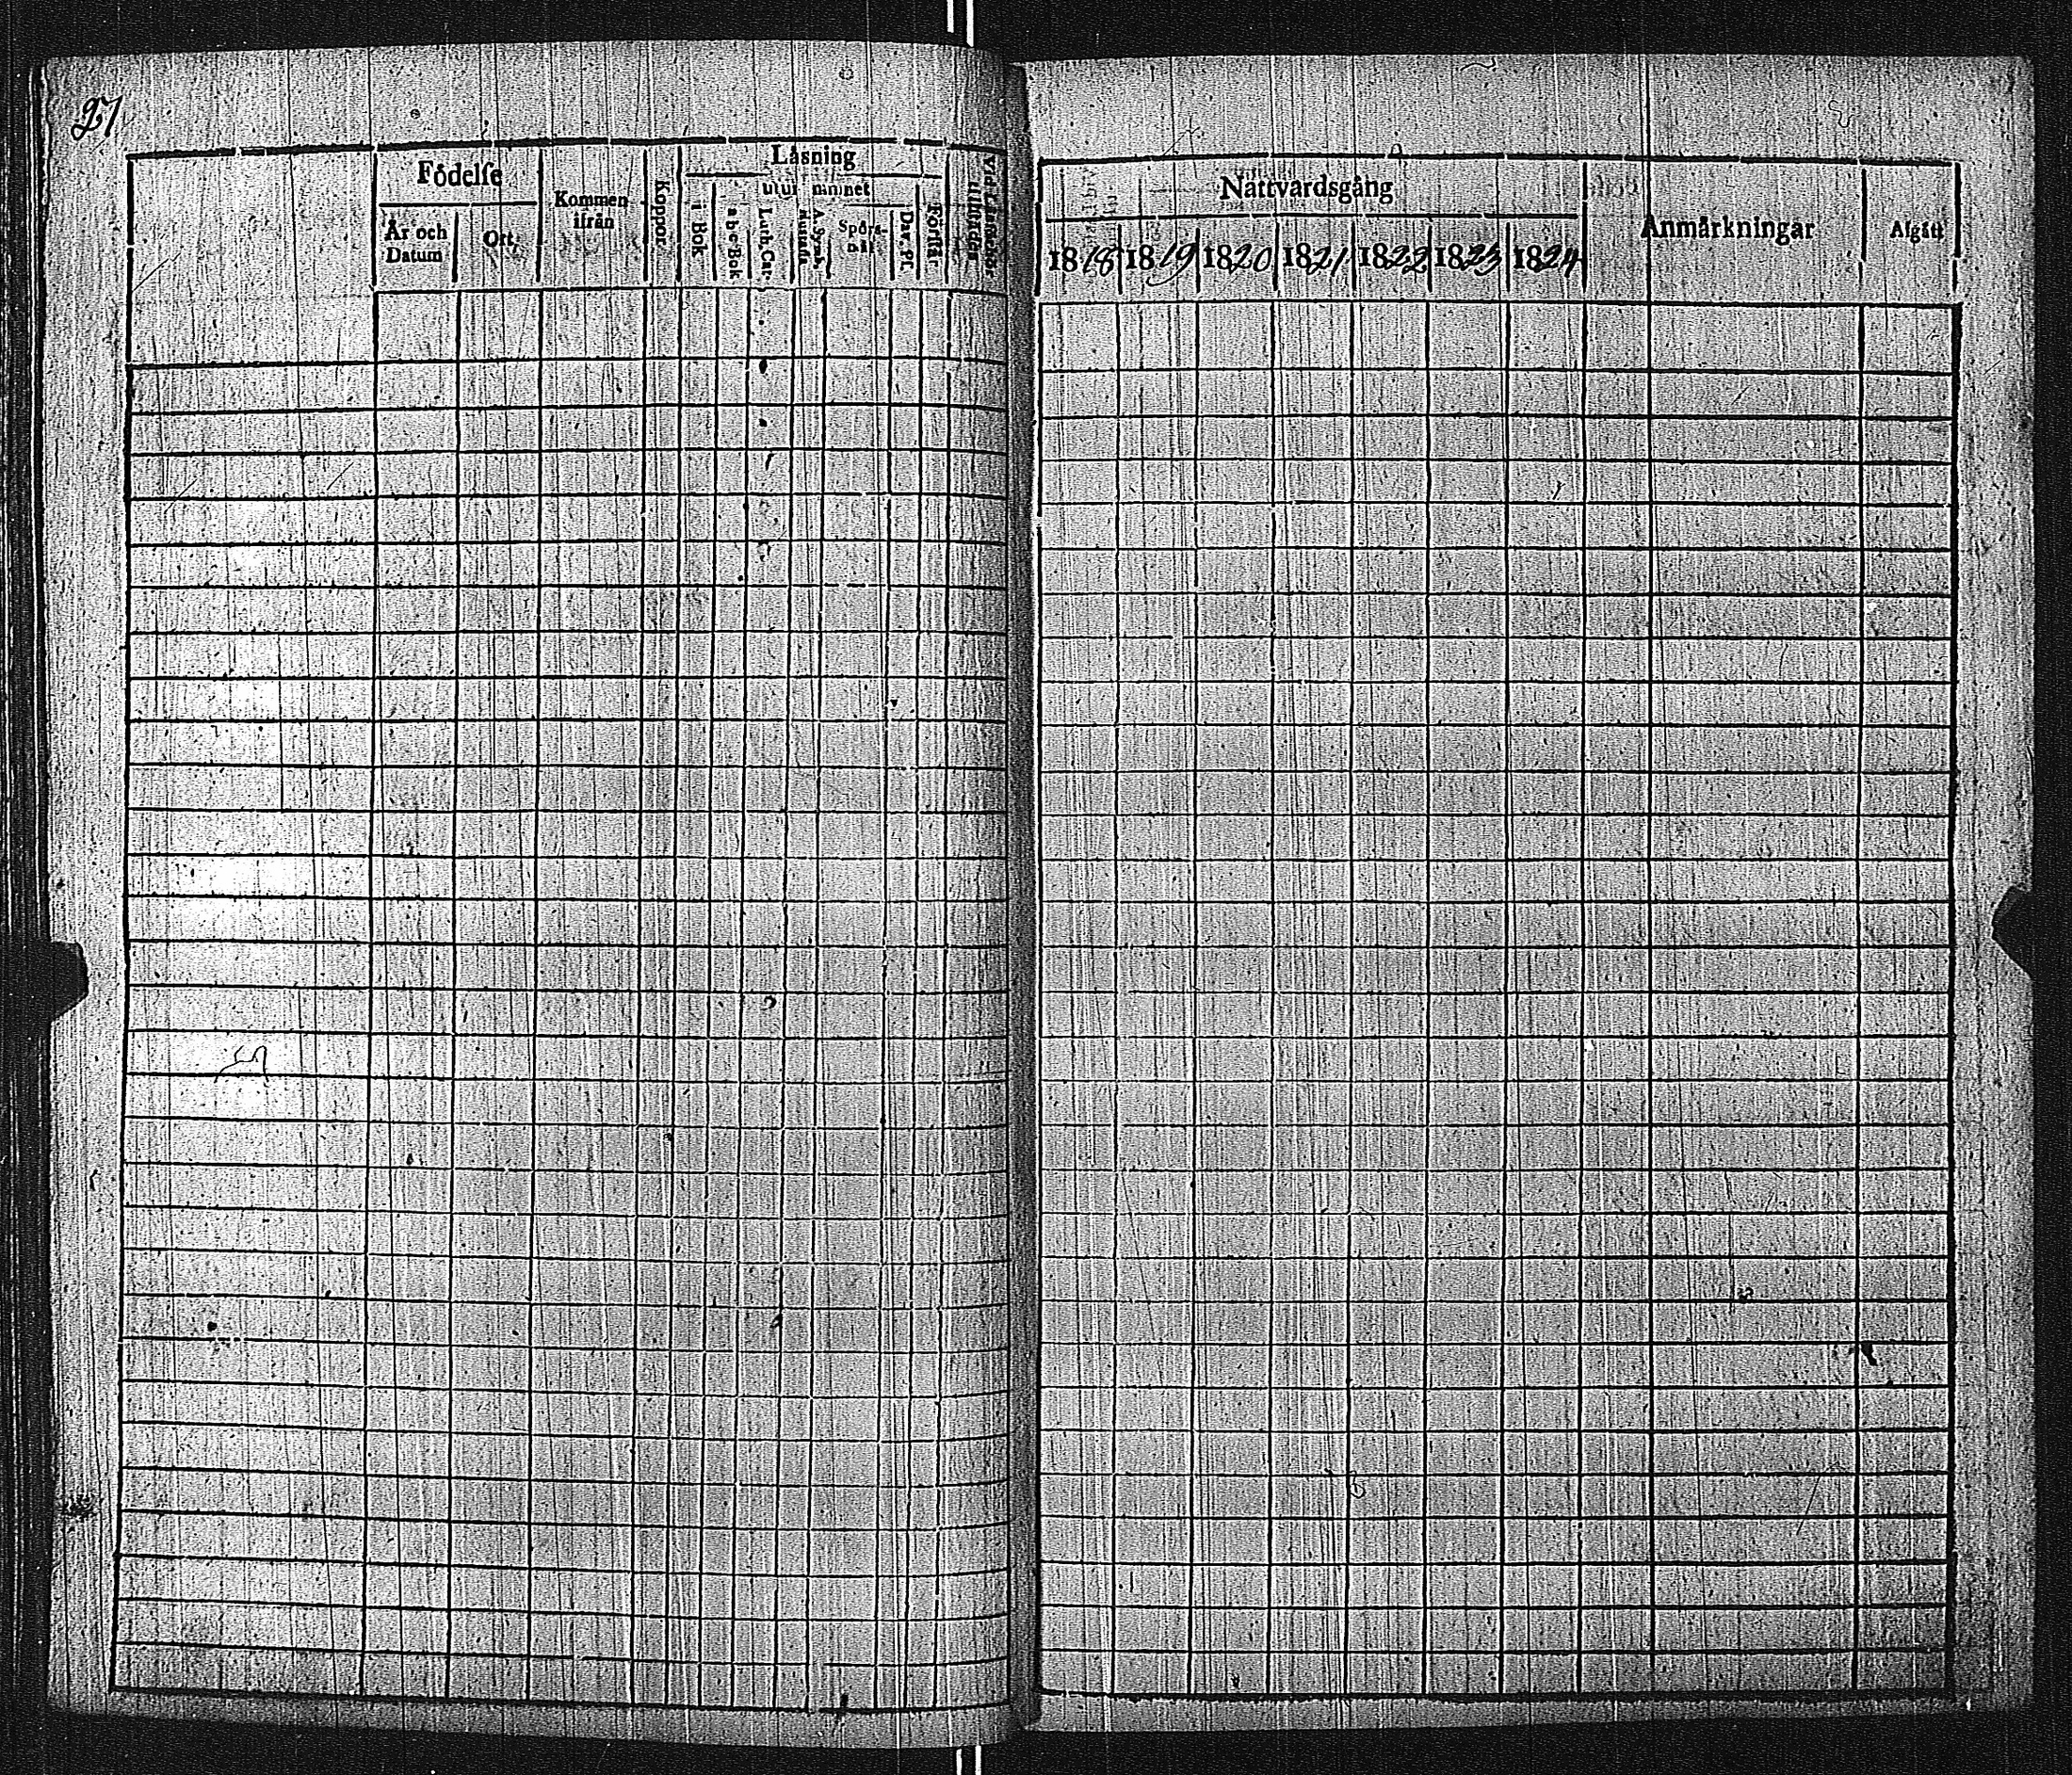 27
Födelse
År och Datum
Ort
Kommen ifrån
Koppor
Läsning
utur minnet
i Bok
a b c Bok
Luth. Cat.
A. Symb.
Spörsmål
Dav. Ps.
Förstår
Nattvardsgång
1818 1819 1820 1821 1822 1823 1824
Anmärkningar
Afgått